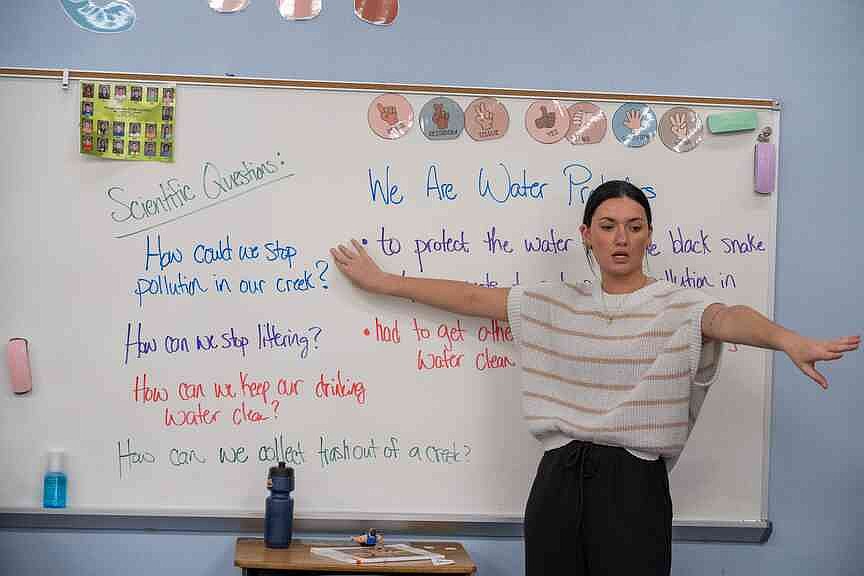 Scientific Questions:
How could we stop
pollution in our creek?
How can we stop littering?
How can we keep our drinking
water clean?
How can we collect trash out of a creek?
We Are Water
• to protect the water
black snake
pollution in
• had to get
water clean